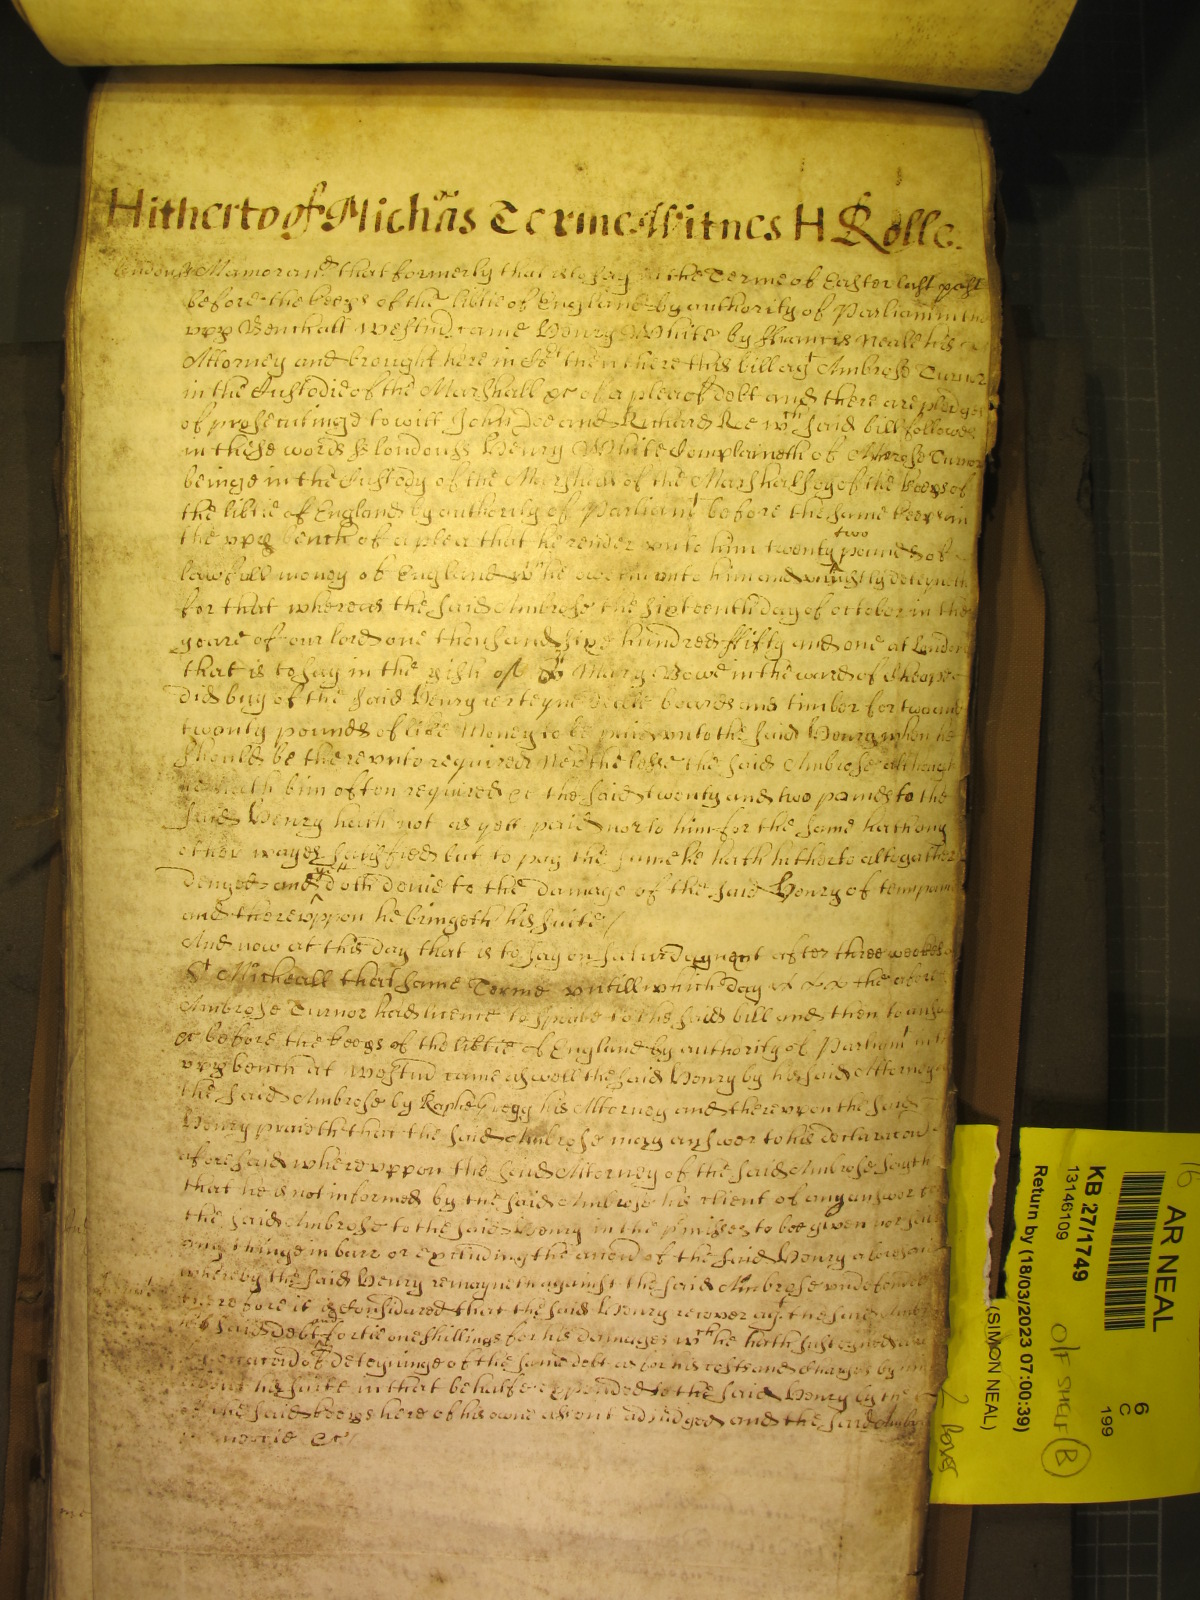 Hitherto of Michãs Terme Witnes H Rolle.
London ss Memorand that formerly that is to say in the Terme of Easter last past
before the keeps of the libtie of England by authority of Parliament in the
upp Bench att Westmr came Henry White by Francis Neall his
Attorney and brought here in Ct then there this bill agt Ambrose Turnor
in the Custodie of the Marshall &c of a plea of debt and there are pledges
of prosecutinge to witt John Doe and Richard Roe wch said bill followes
in these words ss London ss Henry White Complaineth of Ambrose Turnor
beinge in the Custody of the Marshall of the Marshalsey of the keeps of
the libtie of England by authority of Parliamt before the same keeps in
the upp bench of a plea that he render unto him twenty two pounds of
lawfull money of England wch he oweth unto him and uniustly deteyneth
for that whereas the said Ambrose the sixteenth day of october in the
yeare of our lord one thousand sixe hundred fifty and one at London
that is to say in the pish of St Mary Bowe in the ward of Cheape
did buy of the said Henry certeyne deale boards and timber for two and
twenty pounds of like Money to be paid unto the said Henry when he
should be thereunto required Nevthelesse the said Ambrose although
he hath bin often required &c the said twenty and two pounds to the
said Henry hath not as yett paid nor to him for the same hath any
other wayes satisfied but to pay the same he hath hitherto altogather
denyed and yet doth denie to the damage of the said Henry of tenn pounds
and thereuppon he bringeth his suite /
And now at this day that is to say on Saturday next after three weekes of
St Michaell that same Terme untill which day the afore
Ambrose Turnor had licence to speake to the said bill and then to answ
&c before the keeps of the libtie of England by authority of Parliamt in the
upp bench at Westmr came aswell the said Henry by his said Attorney as
the said Ambrose by Raphe Gregg his Attorney and thereupon the said
Henry praieth that the said Ambrose may answer to his declaracon
aforesaid whereuppon the said Attorney of the said Ambrose sayth
that he is not informed by the said Ambrose his client of any answer
the said Ambrose to the said Henry in the pmisses to bee given nor
any thinge in barr or the accon of the said Henry aforesaid
whereby the said Henry remayneth against the said Ambrose undefended
therefore it is Considered that the said Henry recover agt the said Ambrose
his said debt and fortie one shillings for his damages wch he hath susteyned
of deteyninge of the same debt as for his costs and charges by him
about his suite in that behalfe expended to the said Henry by the
of the said keeps here of his owne assent adiudged and the said Ambrose
in mercie &c /
AR NEAL
KB 27/1749
13146109
Return by (18/03/2023 07:00:39)
(SIMON NEAL)
6
C
199
16
O/F SHELF (B)
2 boxes